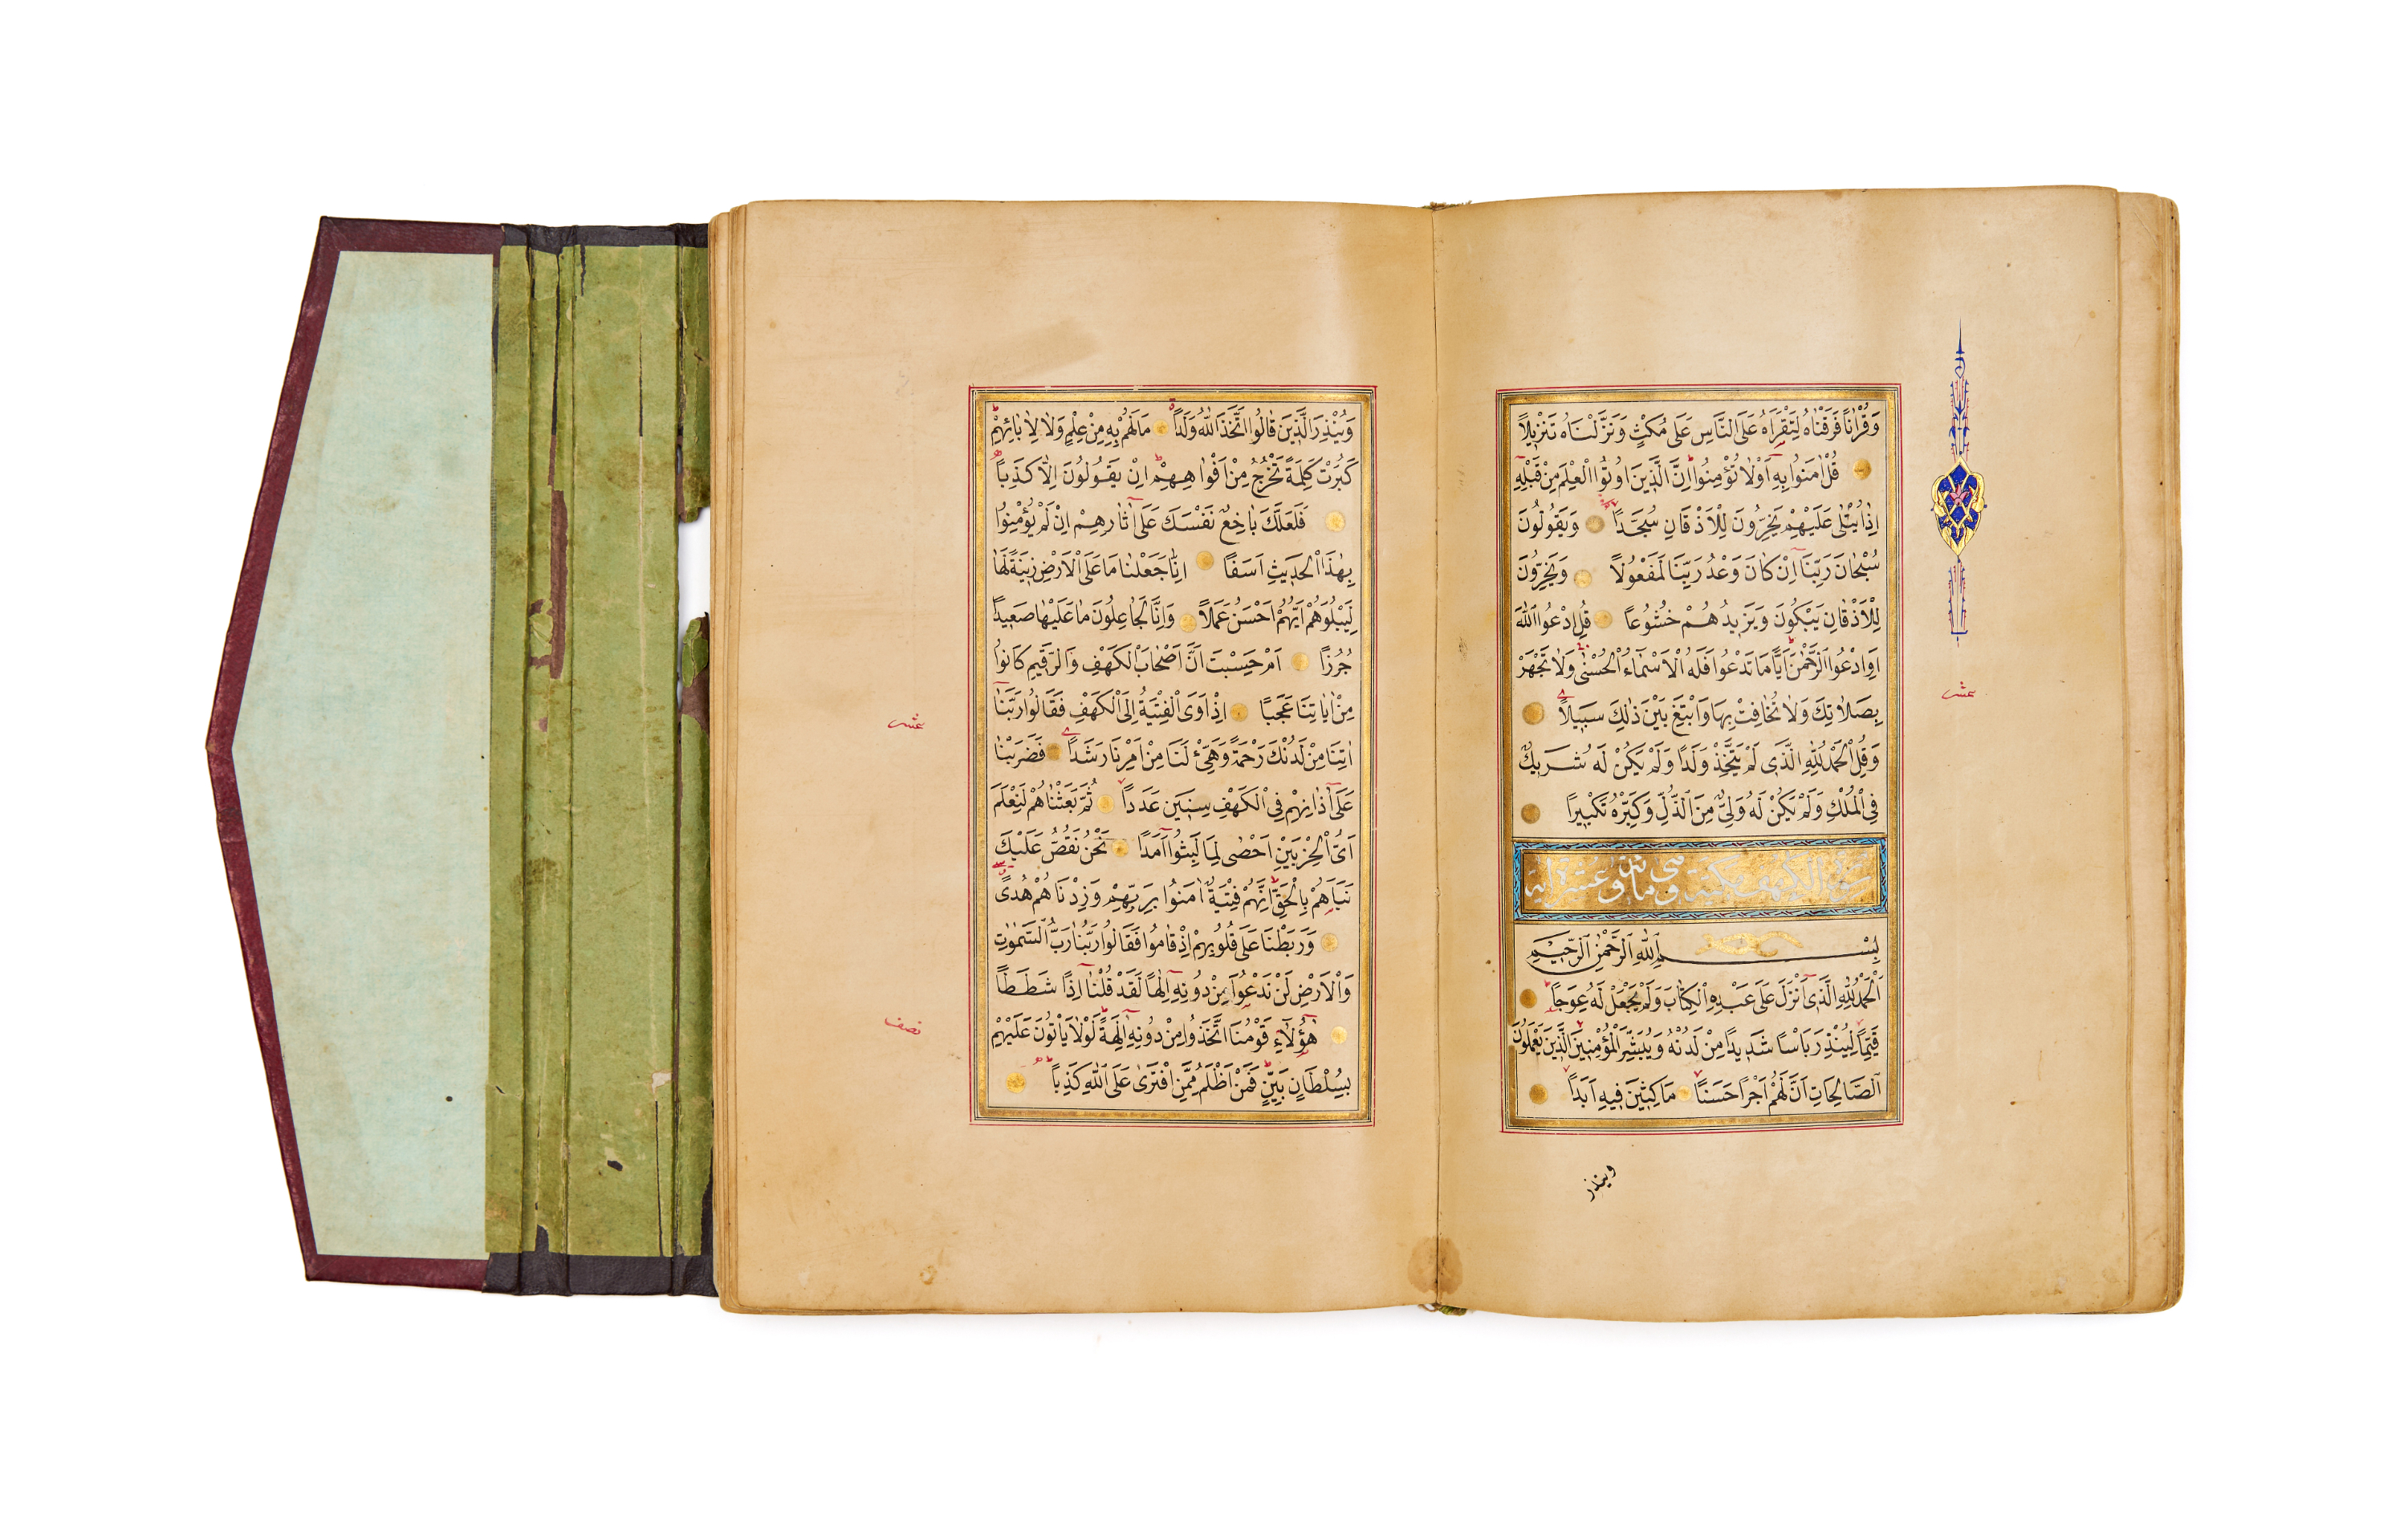 وَقُرْاٰنًا فَرَقْنَاهُ لِتَقْرَاَهُ عَلَى النَّاسِ عَلٰى مُكْثٍ وَنَزَّلْنَاهُ تَنْزِيلًا
قُلْ اٰمَنُوا بِهِ اَوْلَا تُؤْمِنُوا اِنَّ الَّذِينَ اُوتُوا الْعِلْمَ مِنْ قَبْلِهِ
اِذَا يُتْلٰى عَلَيْهِمْ يَخِرُّونَ لِلْاَذْقَانِ سُجَّدًا وَيَقُولُونَ
سُبْحَانَ رَبِّنَا اِنْ كَانَ وَعْدُ رَبِّنَا لَمَفْعُولًا وَيَخِرُّونَ
لِلْاَذْقَانِ يَبْكُونَ وَيَزِيدُهُمْ خُشُوعًا قُلِ ادْعُوا اللّٰهَ
اَوِ ادْعُوا الرَّحْمٰنَ اَيًّا مَا تَدْعُوا فَلَهُ الْاَسْمَاءُ الْحُسْنٰى وَلَا تَجْهَرْ
بِصَلَاتِكَ وَلَا تُخَافِتْ بِهَا وَابْتَغِ بَيْنَ ذٰلِكَ سَبِيلًا
وَقُلِ الْحَمْدُ لِلّٰهِ الَّذِى لَمْ يَتَّخِذْ وَلَدًا وَلَمْ يَكُنْ لَهُ شَرِيكٌ
فِى الْمُلْكِ وَلَمْ يَكُنْ لَهُ وَلِىٌّ مِنَ الذُّلِّ وَكَبِّرْهُ تَكْبِيرًا
سورة الكهف مكية وهى مائة وعشر اية
بِسْمِ اللّٰهِ الرَّحْمٰنِ الرَّحِيمِ
اَلْحَمْدُ لِلّٰهِ الَّذِى اَنْزَلَ عَلٰى عَبْدِهِ الْكِتَابَ وَلَمْ يَجْعَلْ لَهُ عِوَجًا
قَيِّمًا لِيُنْذِرَ بَاْسًا شَدِيدًا مِنْ لَدُنْهُ وَيُبَشِّرَ الْمُؤْمِنِينَ الَّذِينَ يَعْمَلُونَ
الصَّالِحَاتِ اَنَّ لَهُمْ اَجْرًا حَسَنًا مَاكِثِينَ فِيهِ اَبَدًا
عشر
وينذر
وَيُنْذِرَ الَّذِينَ قَالُوا اتَّخَذَ اللّٰهُ وَلَدًا مَا لَهُمْ بِهِ مِنْ عِلْمٍ وَلَا لِاٰبَائِهِمْ
كَبُرَتْ كَلِمَةً تَخْرُجُ مِنْ اَفْوَاهِهِمْ اِنْ يَقُولُونَ اِلَّا كَذِبًا
فَلَعَلَّكَ بَاخِعٌ نَفْسَكَ عَلٰى اٰثَارِهِمْ اِنْ لَمْ يُؤْمِنُوا
بِهٰذَا الْحَدِيثِ اَسَفًا اِنَّا جَعَلْنَا مَا عَلَى الْاَرْضِ زِينَةً لَهَا
لِيَبْلُوَهُمْ اَيُّهُمْ اَحْسَنُ عَمَلًا وَاِنَّا لَجَاعِلُونَ مَا عَلَيْهَا صَعِيدًا
جُرُزًا اَمْ حَسِبْتَ اَنَّ اَصْحَابَ الْكَهْفِ وَالرَّقِيمِ كَانُوا
مِنْ اٰيَاتِنَا عَجَبًا اِذْ اَوَى الْفِتْيَةُ اِلَى الْكَهْفِ فَقَالُوا رَبَّنَا
اٰتِنَا مِنْ لَدُنْكَ رَحْمَةً وَهَيِّئْ لَنَا مِنْ اَمْرِنَا رَشَدًا فَضَرَبْنَا
عَلٰى اٰذَانِهِمْ فِى الْكَهْفِ سِنِينَ عَدَدًا ثُمَّ بَعَثْنَاهُمْ لِنَعْلَمَ
اَىُّ الْحِزْبَيْنِ اَحْصٰى لِمَا لَبِثُوا اَمَدًا نَحْنُ نَقُصُّ عَلَيْكَ
نَبَاَهُمْ بِالْحَقِّ اِنَّهُمْ فِتْيَةٌ اٰمَنُوا بِرَبِّهِمْ وَزِدْنَاهُمْ هُدًى
وَرَبَطْنَا عَلٰى قُلُوبِهِمْ اِذْ قَامُوا فَقَالُوا رَبُّنَا رَبُّ السَّمٰوَاتِ
وَالْاَرْضِ لَنْ نَدْعُوَا مِنْ دُونِهِ اِلٰهًا لَقَدْ قُلْنَا اِذًا شَطَطًا
هٰؤُلَاءِ قَوْمُنَا اتَّخَذُوا مِنْ دُونِهِ اٰلِهَةً لَوْلَا يَاْتُونَ عَلَيْهِمْ
بِسُلْطَانٍ بَيِّنٍ فَمَنْ اَظْلَمُ مِمَّنِ افْتَرٰى عَلَى اللّٰهِ كَذِبًا
عشر
نصف